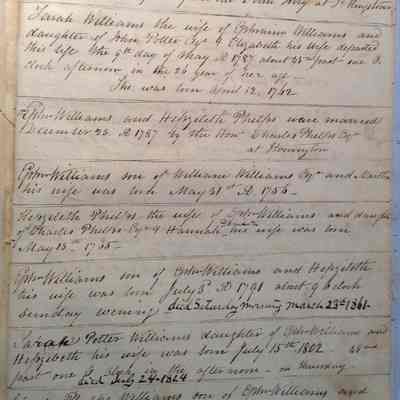 Sarah Williams the wife of Ephraim Williams and
daughter of John Potter Esqr & Elizabeth his wife departed
this life the 9th day of May D 1787 about 25 past one o
clock afternoon, in the 26 year of her age
She was born April 12, 1762
Ephm Williams and Hepzibeth Phelps were married
December 23 D 1787 by the Honl Charles Phelps Esqr
at
Ephm Williams son of William Williams Esqr and Martha
his wife was born May 31st D 1756
Hepzibeth Phelps the wife of Ephm Williams and daughter
of Charles Phelps Esqr & Hannah his wife was born
May 15th 1765
Ephm Williams son of Ephm Williams and Hepzibeth
his wife was born July 3d D 1791 about 9 o clock
Sunday evening died Saturday morning March 23d 1861
Sarah Potter Williams daughter of Ephm Williams and
Hepzibeth his wife was born July 15th 1802
past one o clock in the afternoon on thursday
died July 24 1824
Williams son of Ephm Williams and